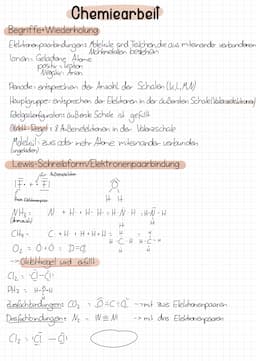 Chemiearbeit
Begriffe + Wiederholung
Elektronenpaarbindungen: Moleküle sind Teilchen, die aus miteinander verbundenen
Nichtmetallen bestehen
Ionen: Geladene Atome
positiv: Kation
Negativ: Anion
Periode: entsprechen der Anzahl der Schalen (K,L,M,N)
Hauptgruppe: entsprechen der Elektronen in der äußersten Schale (Valenzelektronen)
Edelgaskonfiguration: äußerste Schale ist gefüllt
Oktett-Regel: 8 Außenelektronen in der Valenzschale
Molekül: zwei oder mehr Atome miteinander verbunden
(ungeladen)
Lewis-Schreibform/Elektronenpaarbindung
H H
NH₃ = N + H + H + H = H-N-H = H-N-H
H H
CH₄ = C + H + H + H + H =
H
H-C-H
H
O₂ = O + O =
→ Oktettregel wird erfüllt
Cl₂ = Cl-Cl
PH₃ = H-P-H
H
Zweifachbindungen: CO₂ = O=C=O → mit zwei Elektronenpaaren
Dreifachbindungen: N₂ = N≡N → mit drei Elektronenpaaren
Cl₂ = Cl - Cl